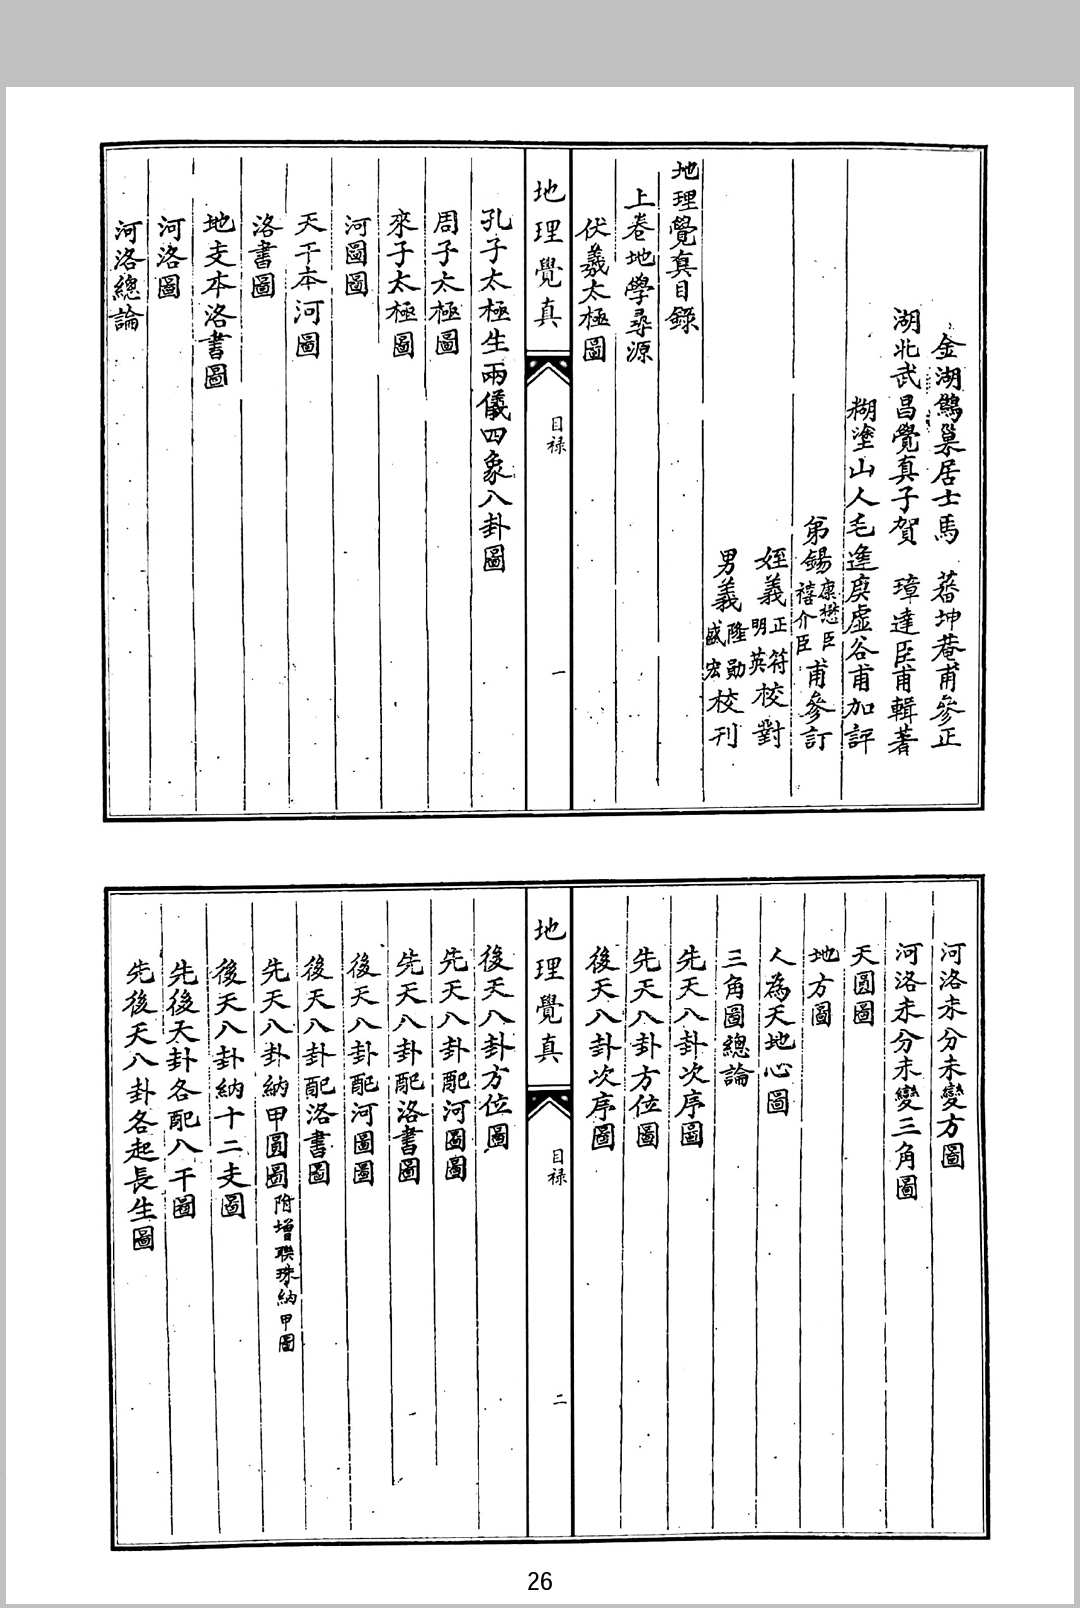 金湖鷦巢居士馬　蕃坤菴甫參正
湖北武昌覺真子賀　璋達臣甫輯著
糊塗山人毛逢庚虛谷甫加評
弟錫康懋臣禧介臣甫參訂
姪義正符明英校對
男義隆勛盛宏校刊
地理覺真目錄
上卷地學尋源
伏羲太極圖
地理覺真
目禄
一
孔子太極生兩儀四象八卦圖
周子太極圖
來子太極圖
河圖圖
天干本河圖
洛書圖
地支本洛書圖
河洛圖
河洛總論
河洛未分未變方圖
河洛未分未變三角圖
天圓圖
地方圖
人為天地心圖
三角圖總論
先天八卦次序圖
先天八卦方位圖
後天八卦次序圖
地理覺真
目禄
二
後天八卦方位圖
先天八卦配河圖圖
先天八卦配洛書圖
後天八卦配河圖圖
後天八卦配洛書圖
先天八卦納甲圓圖附增聯珠納甲圖
後天八卦納十二支圖
先後天卦各配八干圖
先後天八卦各起長生圖
26